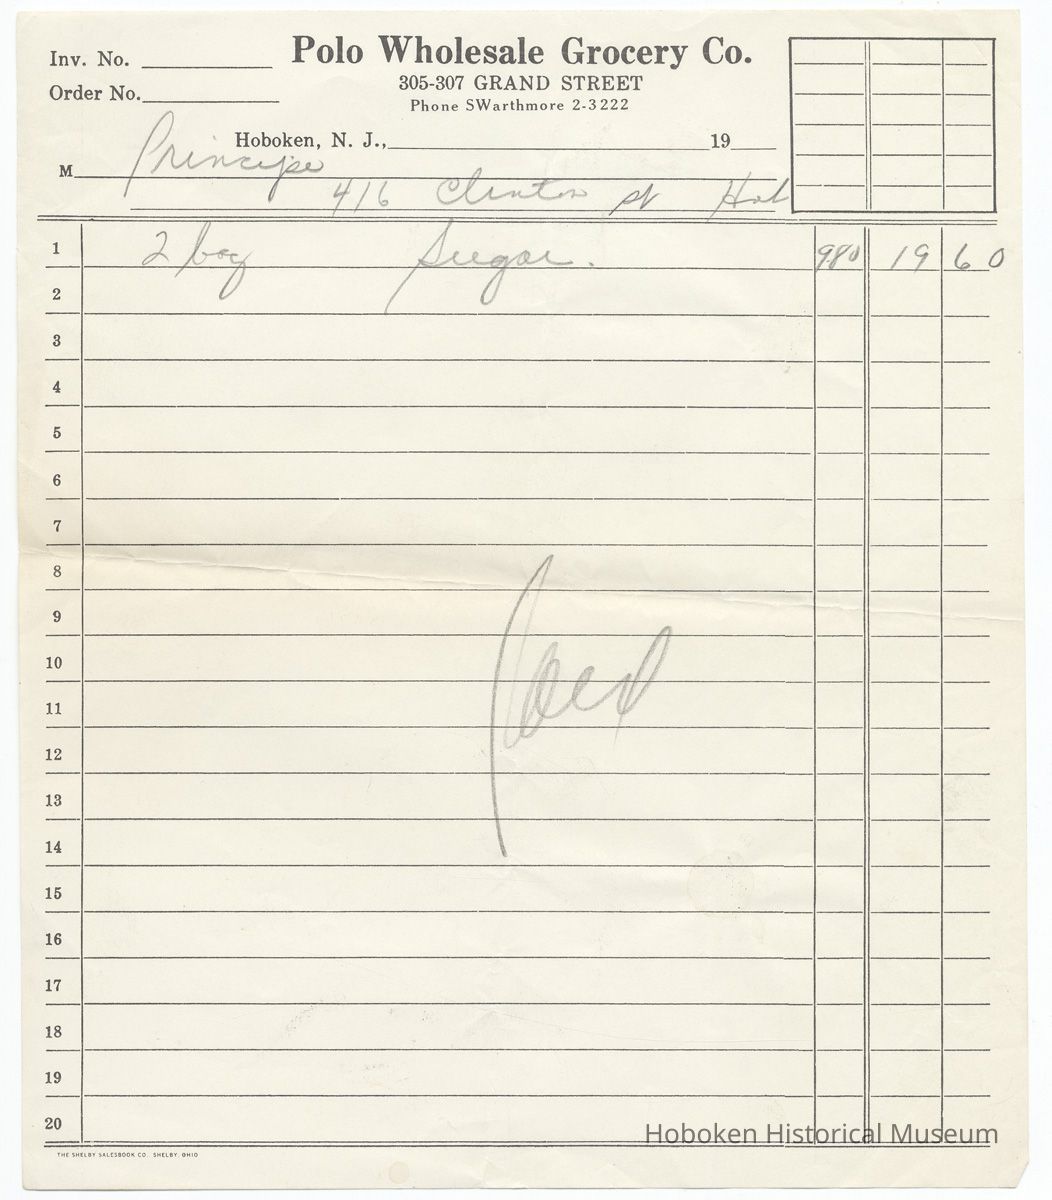 Inv. No.
Polo Wholesale Grocery Co.
305-307 GRAND STREET
Order No.
Phone SWarthmore 2-3222
Hoboken, N. J., 19
M Principe
416 Clinton st Hob
1 2 bag Sugar. 980 19 60
2
3
4
5
6
7
8
9
10
11
12
13
14
15
16
17
18
19
20
THE SHELBY SALESBOOK CO. SHELBY, OHIO
Hoboken Historical Museum